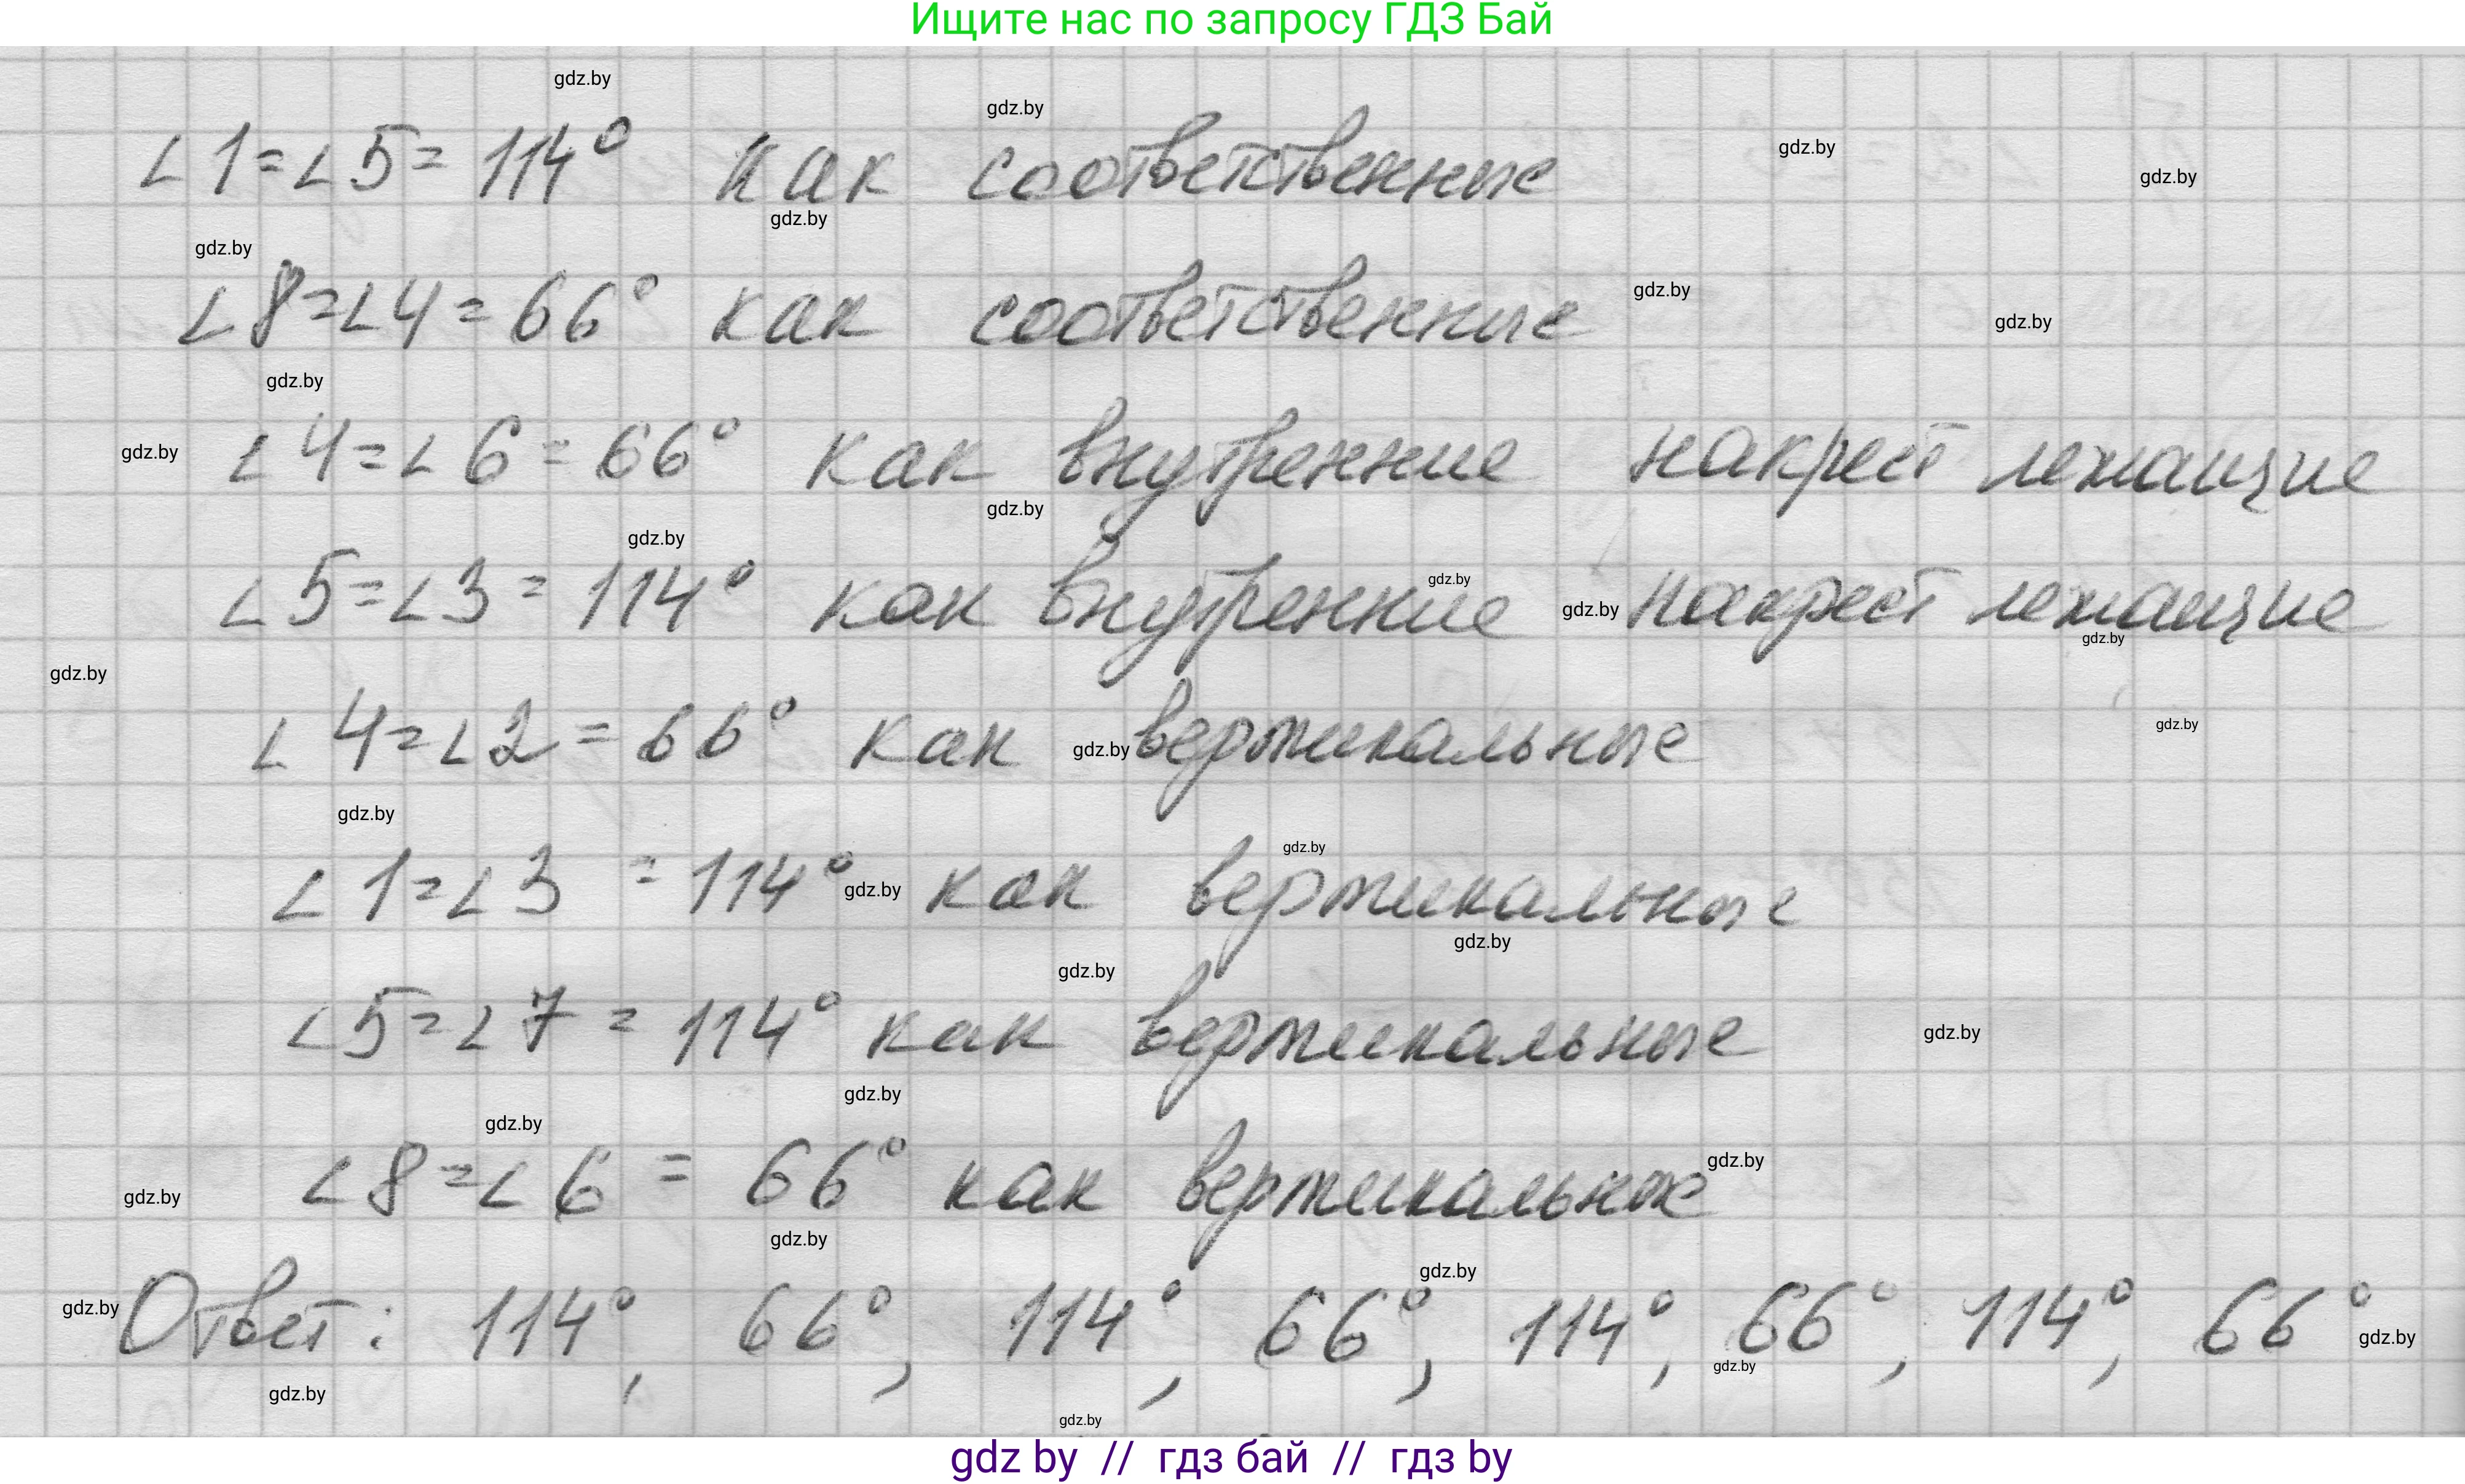 Ищите нас по запросу ГДЗ Бай
gdz.by
gdz.by
gdz.by
gdz.by
∠1=∠5= 114° как соответственные
gdz.by
gdz.by
∠8=∠4= 66° как соответственные
gdz.by
gdz.by
gdz.by
∠4=∠6= 66° как внутренние накрест лежащие
gdz.by
gdz.by
gdz.by
∠5=∠3= 114° как внутренние накрест лежащие
gdz.by
gdz.by
gdz.by
gdz.by
∠4=∠2= 66° как вертикальные
gdz.by
gdz.by
gdz.by
gdz.by
∠1=∠3 = 114° как вертикальные
gdz.by
gdz.by
gdz.by
∠5=∠7 = 114° как вертикальные
gdz.by
gdz.by
gdz.by
∠8=∠6 = 66° как вертикальные
gdz.by
gdz.by
gdz.by
gdz.by
Ответ: 114°, 66°, 114°, 66°, 114°, 66°, 114°, 66°
gdz.by
gdz.by
gdz.by
gdz.by
gdz.by
gdz by // гдз бай // гдз by